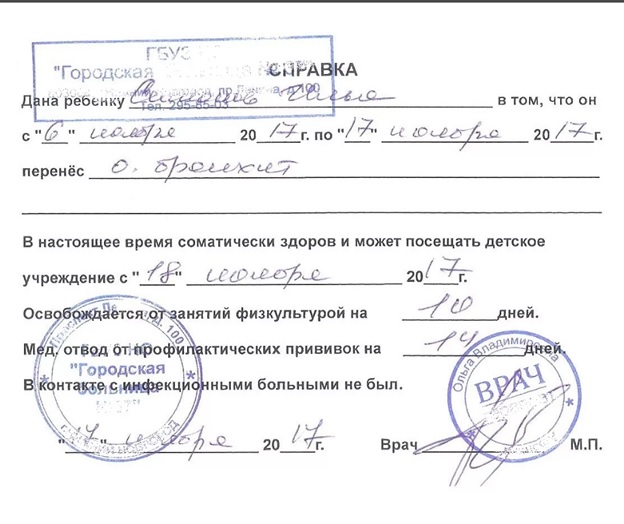 ГБУЗ
"Городская
СПРАВКА
пр. Ленина, д. 100
Тел. 295-85-03
Дана ребенку Илье в том, что он
с "6" ноября 2017г. по "17" ноября 2017г.
перенёс о. бронхит
В настоящее время соматически здоров и может посещать детское
учреждение с "18" ноября 2017г.
Освобождается от занятий физкультурой на 10 дней.
Мед. отвод от профилактических прививок на 14 дней.
В контакте с инфекционными больными не был.
"17" ноября 2017г. Врач М.П.
"Городская
больница
Ольга Владимировна
ВРАЧ